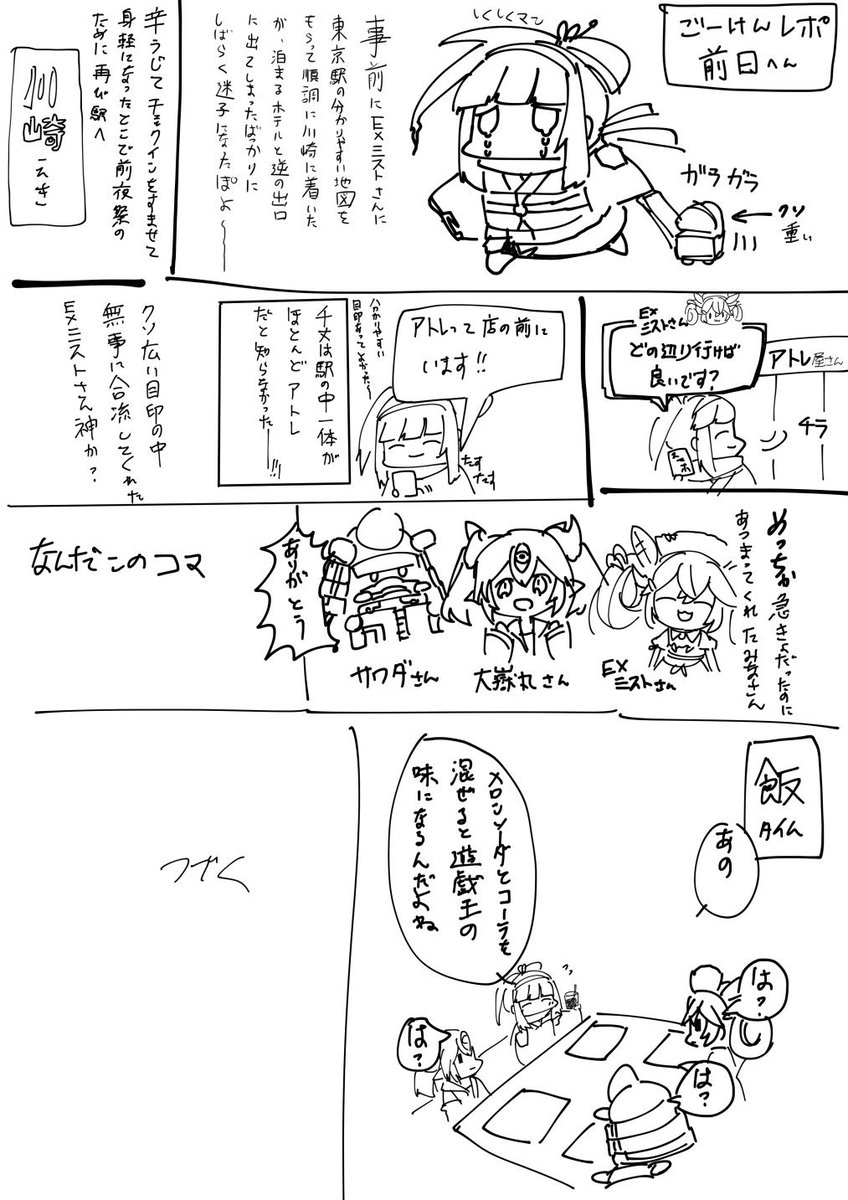 ごーけんレポ
前日へん
しくしくマン
ガラガラ
クソ
重い
事前にEXミストさんに
東京駅の分かりやすい地図を
もらって順調に川崎に着いた
が、泊まるホテルと逆の出口
に出てしまったばっかりに
しばらく迷子になたぽよ〜
辛うじてチェックインをすませて
身軽になったとこで前夜祭の
ために再び駅へ
川崎
えき
EX
ミストさん
どの辺り行けば
良いです?
アトレ屋さん
チラ
スマホ
アトレって店の前に
います!!
たす
たす
分かりやすい
目印あってよかった〜
千丈は駅の中一体が
ほとんどアトレ
だと知らなかった―!!!
クソ広い目印の中
無事に合流してくれた
EXミストさん神か?
めっちゃ急きょだったのに
あつまってくれたみなさん
EX
ミストさん
大嶽丸さん
サワダさん
ありがとう
なんだこのコマ
飯
タイム
あの
メロンソーダとコーラを
混ぜると遊戯王の
味になるんだよね
は?
は?
は?
つづく